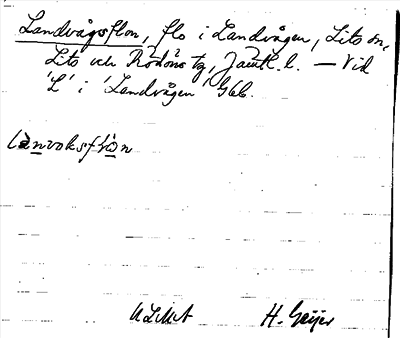 Landvågsflon, flo i Landvågen, Lits sn,
Lits och Rödöns tg, Jämtl. l. — Vid
'L' i 'Landvågen' Gkbl.
lanvoksflon
ULMA H. Geijer